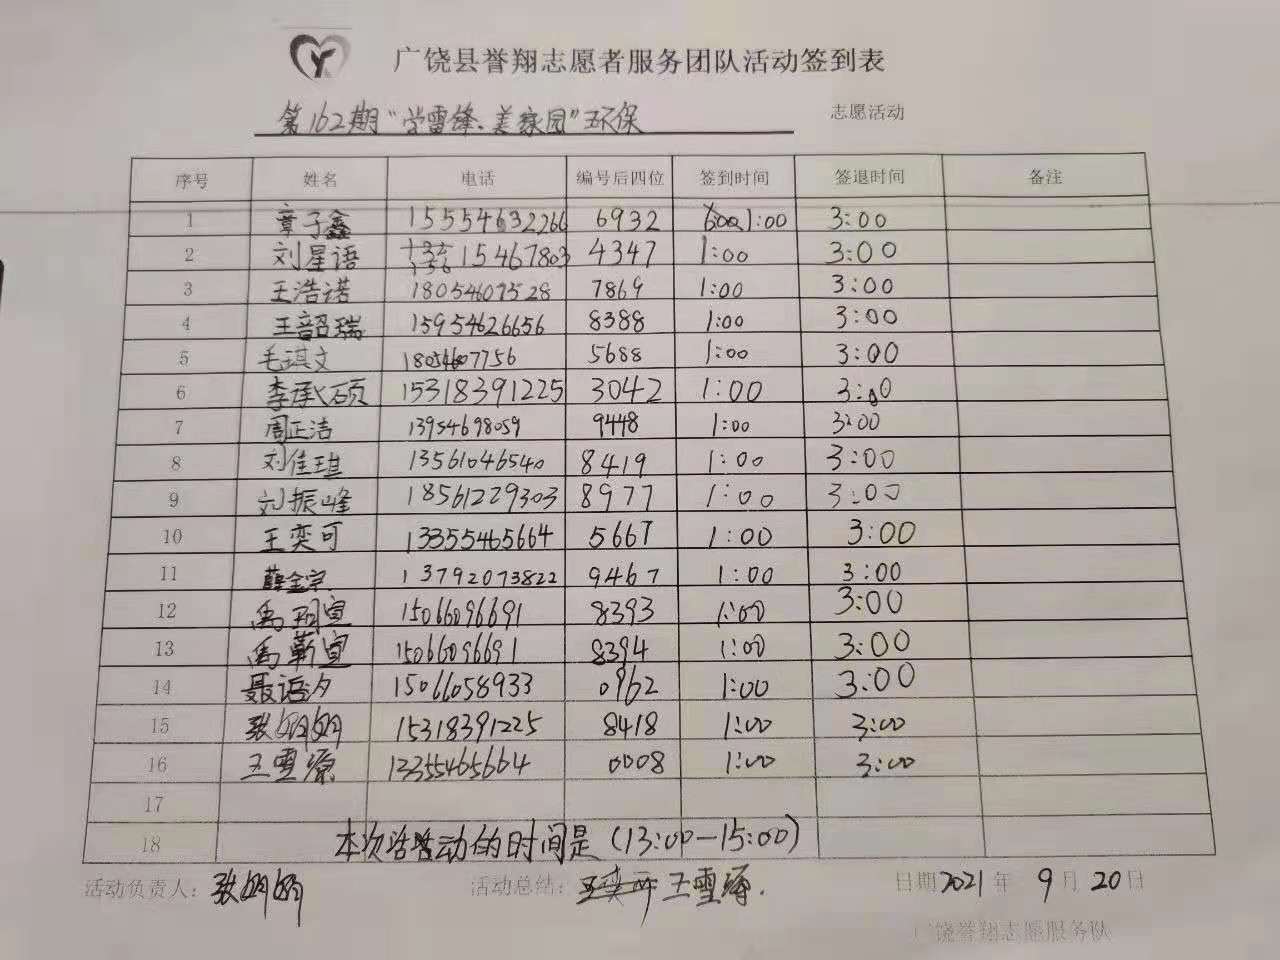 广饶县誉翔志愿者服务团队活动签到表
第162期“学雷锋、美家园”环保 志愿活动
序号 姓名 电话 编号后四位 签到时间 签退时间 备注
1 章子鑫 15554632266 6932 1:00 3:00
2 刘星语 15467803 4347 1:00 3:00
3 王浩诺 18054607528 7869 1:00 3:00
4 王韶瑞 15954626656 8388 1:00 3:00
5 毛琪文 18054607756 5688 1:00 3:00
6 李承硕 15318391225 3042 1:00 3:00
7 周正洁 13954698059 9448 1:00 3:00
8 刘佳琪 13561046540 8419 1:00 3:00
9 刘振峰 18561229303 8977 1:00 3:00
10 王奕可 13355465664 5667 1:00 3:00
11 薛金宇 13792073822 9467 1:00 3:00
12 禹玥宣 15066096691 8393 1:00 3:00
13 禹蕲宣 15066096691 8394 1:00 3:00
14 聂语汐 15066058933 0962 1:00 3:00
15 张娟娟 15318391225 8418 1:00 3:00
16 王雪源 13355465664 0008 1:00 3:00
17
18 本次活动的时间是（13:00—15:00）
活动负责人：张娟娟 活动总结：王奕可 王雪源. 日期2021年 9月 20日
广饶誉翔志愿服务队